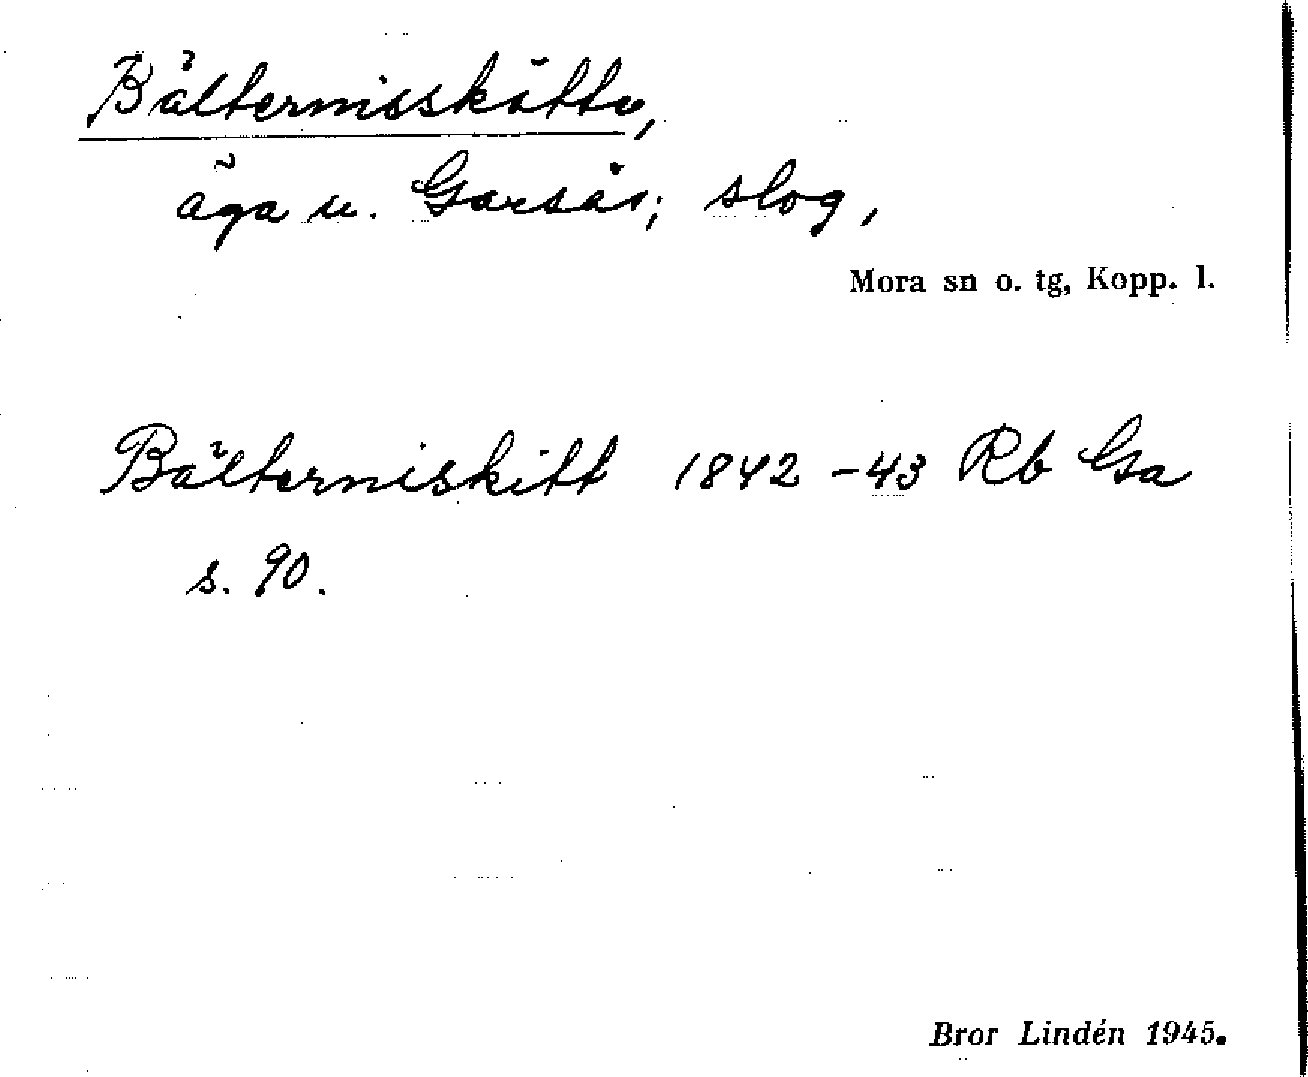 Bältermisskôtte,
äga u. Garsås; slog,
Mora sn o. tg, Kopp. l.
Bältermiskitt 1842-43 Rb Ga
s. 90.
Bror Lindén 1945.